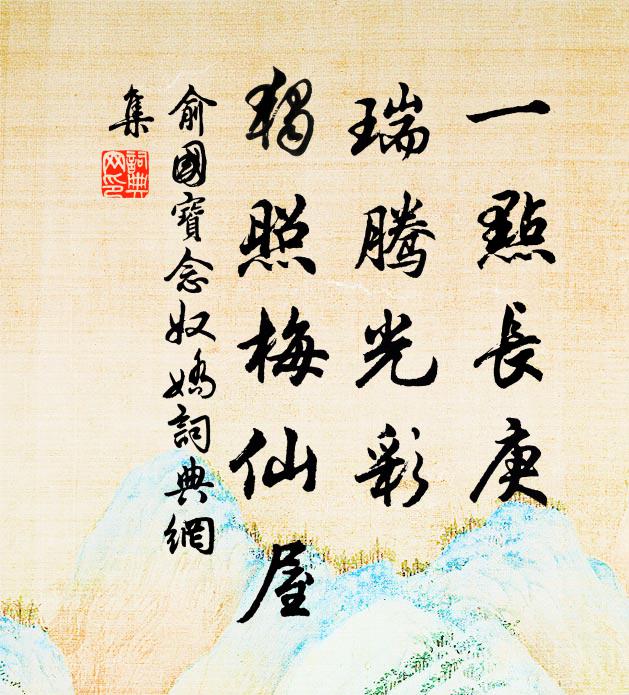 一點長庚
瑞騰光彩
獨照梅仙屋
俞國寶念奴嬌詞典網
集
詞典
網印